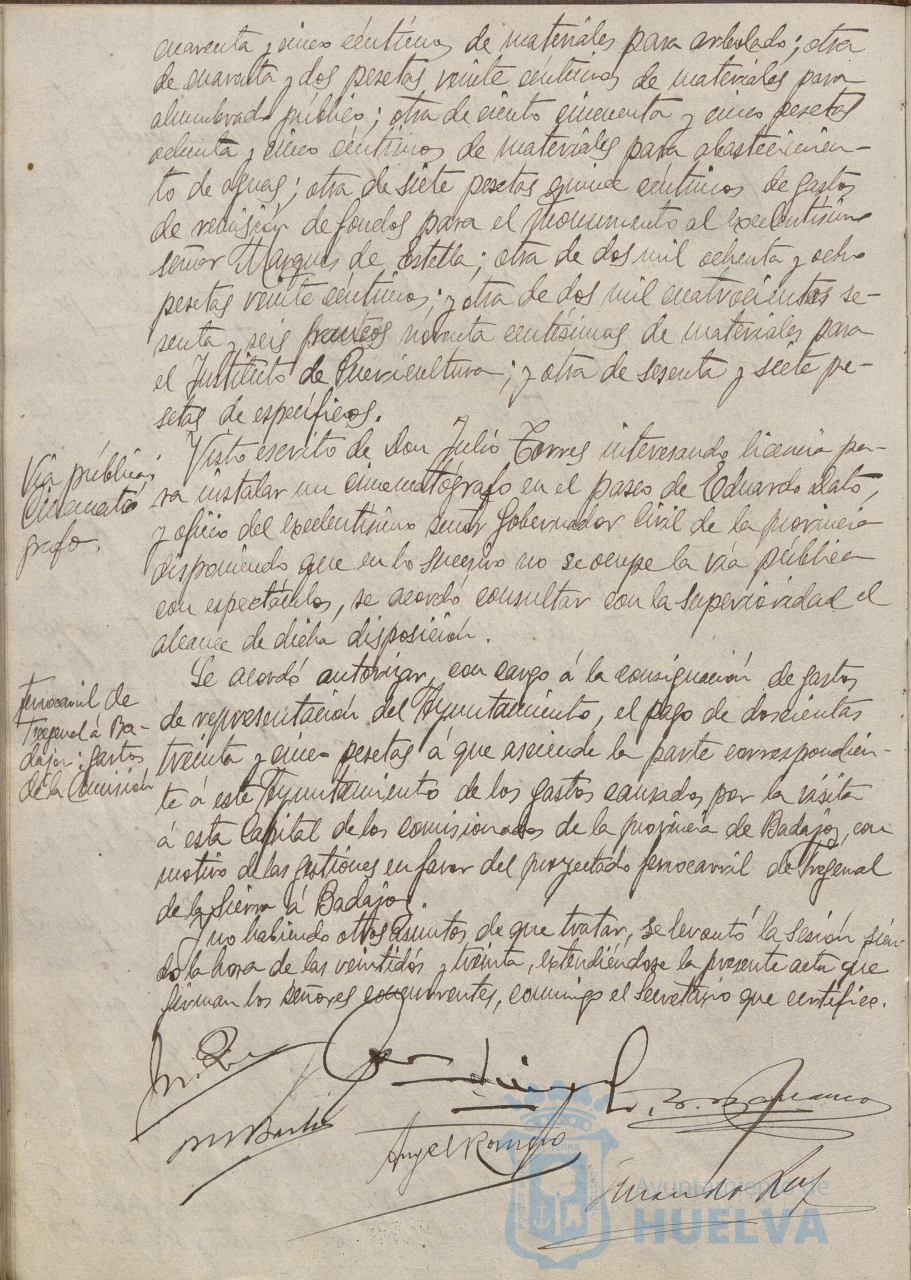 cuarenta y cinco céntimos de materiales para arbolado; otra
de cuarenta y dos pesetas veinte céntimos de materiales para
alumbrado público; otra de ciento cincuenta y cinco pesetas
ochenta y cinco céntimos de materiales para abastecimien-
to de aguas; otra de siete pesetas quince céntimos de gastos
de remisión de fondos para el monumento al excelentísimo
señor Marqués de Estella; otra de dos mil ochenta y ocho
pesetas veinte céntimos; y otra de dos mil cuatrocientos se-
senta y seis francos noventa centísimas de materiales para
el Instituto de Puericultura; y otra de sesenta y siete pe-
setas de específicos.
Vía pública;
Cinemató
grafo.
Visto escrito de Don Julio Torres interesando licencia pa-
ra instalar un cinematógrafo en el paseo de Eduardo Dato,
y oficio del excelentísimo señor Gobernador Civil de la provincia
disponiendo que en lo sucesivo no se ocupe la vía pública
con espectáculos, se acordó consultar con la superioridad el
alcance de dicha disposición.
Ferrocarril de
Fregenal á Ba-
dajoz: gastos
de la Comisión
Se acordó autorizar, con cargo á la consignación de gastos
de representación del Ayuntamiento, el pago de doscientas
treinta y cinco pesetas á que asciende la parte correspondien-
te á este Ayuntamiento de los gastos causados por la visita
á esta Capital de los comisionados de la provincia de Badajoz, con
motivo de las gestiones en favor del proyectado ferrocarril de Fregenal
de la Sierra á Badajoz.
Y no habiendo otros asuntos de que tratar, se levantó la sesión sien-
do la hora de las veintidós y treinta, extendiéndose la presente acta que
firman los señores concurrentes, conmigo el Secretario que certifico.
Angel Romero
Ayuntamiento de
HUELVA